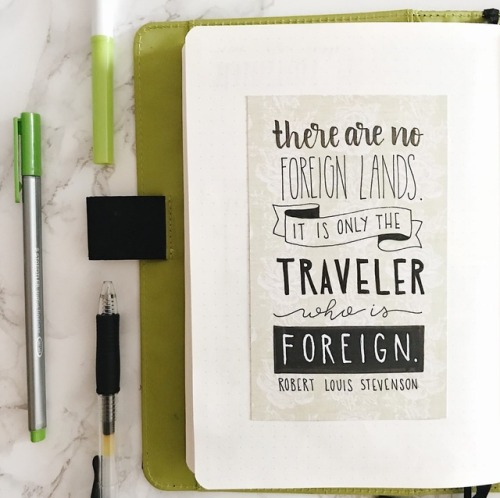 there are no
FOREIGN LANDS.
IT IS ONLY THE
TRAVELER
who is
FOREIGN.
ROBERT LOUIS STEVENSON